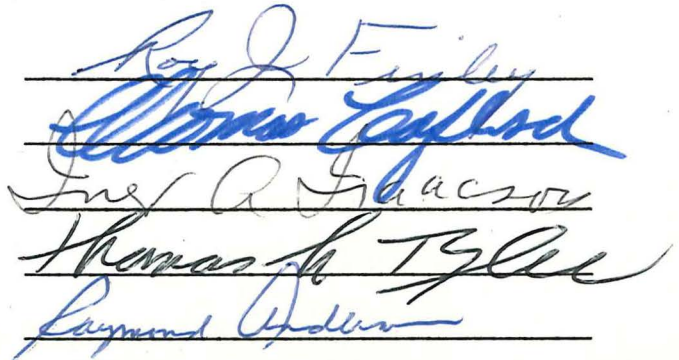 Roy J Finley
Thomas
Iner A Isaacson
Thomas h Tyler
Raymond Anderson